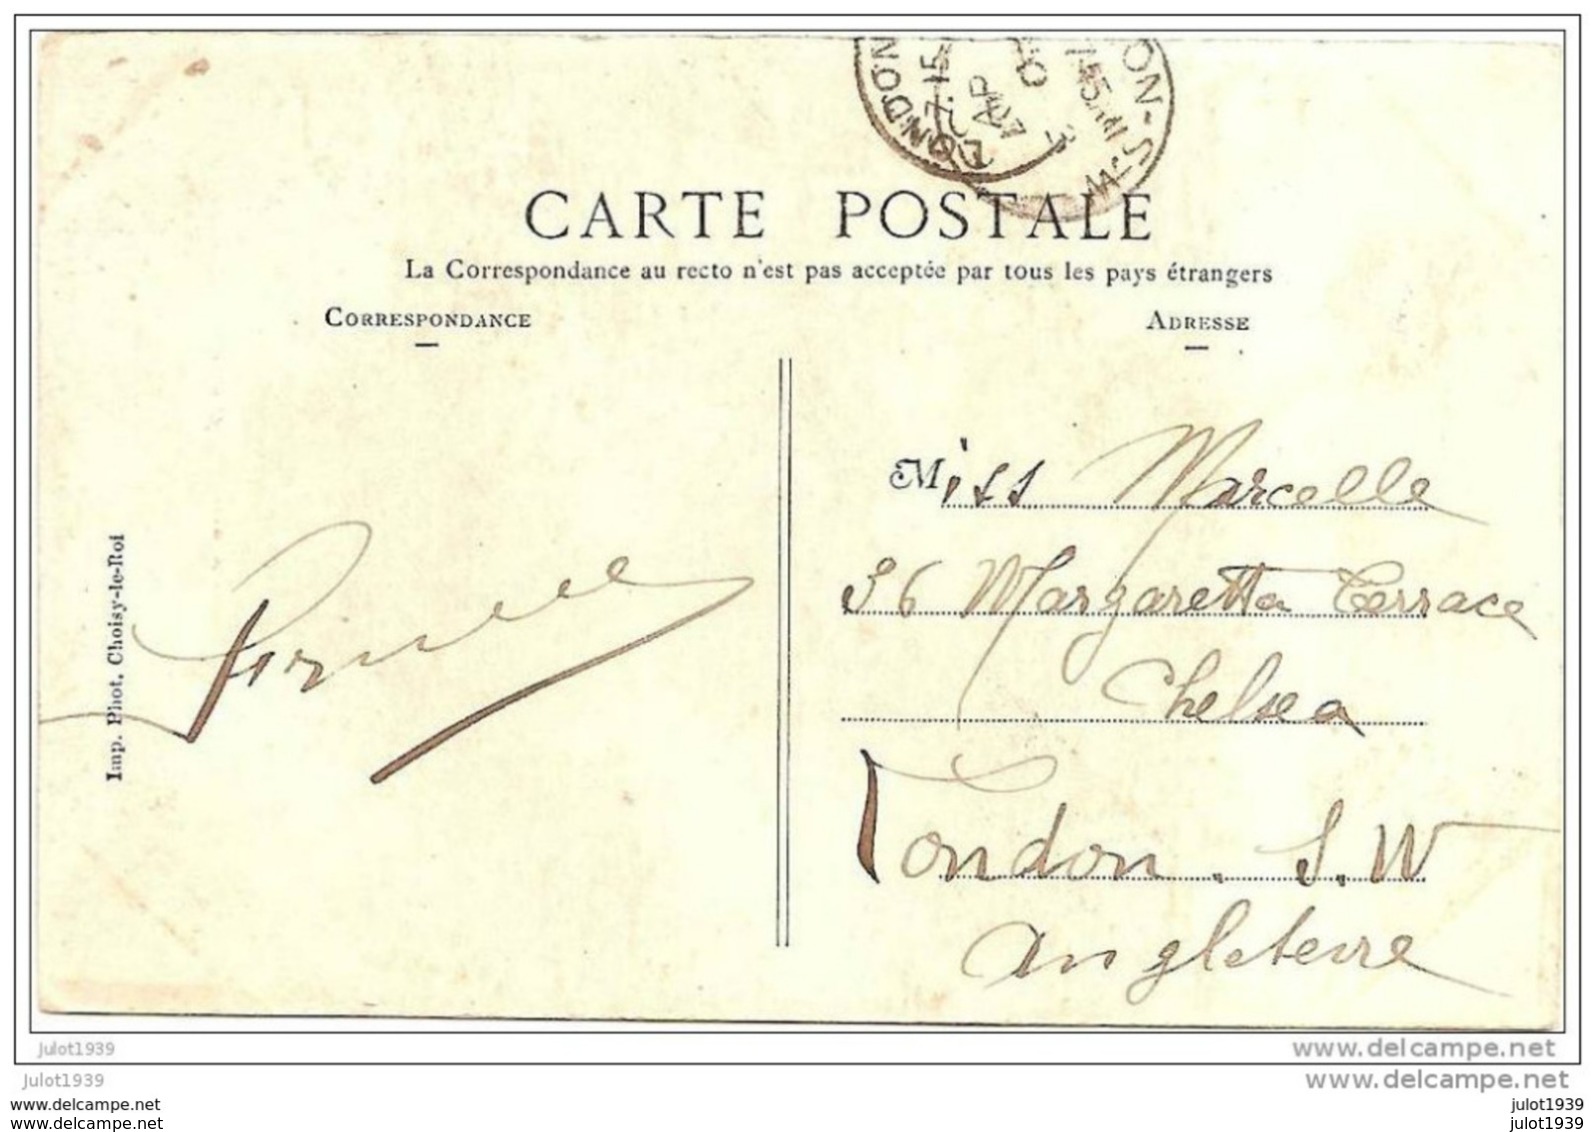 LONDON
7.15
AP
ON-S-W
CARTE POSTALE
La Correspondance au recto n'est pas acceptée par tous les pays étrangers
CORRESPONDANCE
ADRESSE
Miss Marcelle
36 Margaretta Terrace
Chelsea
London. S. W
Angleterre
Imp. Phot. Choisy-le-Roi
julot1939
www.delcampe.net
julot1939
www.delcampe.net
www.delcampe.net
julot1939
www.delcampe.net
julot1939